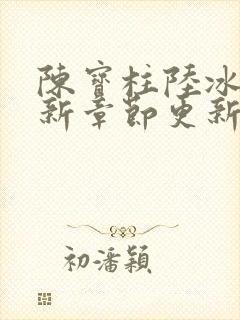 陳寶柱陸冰
新章節更新
初潘穎